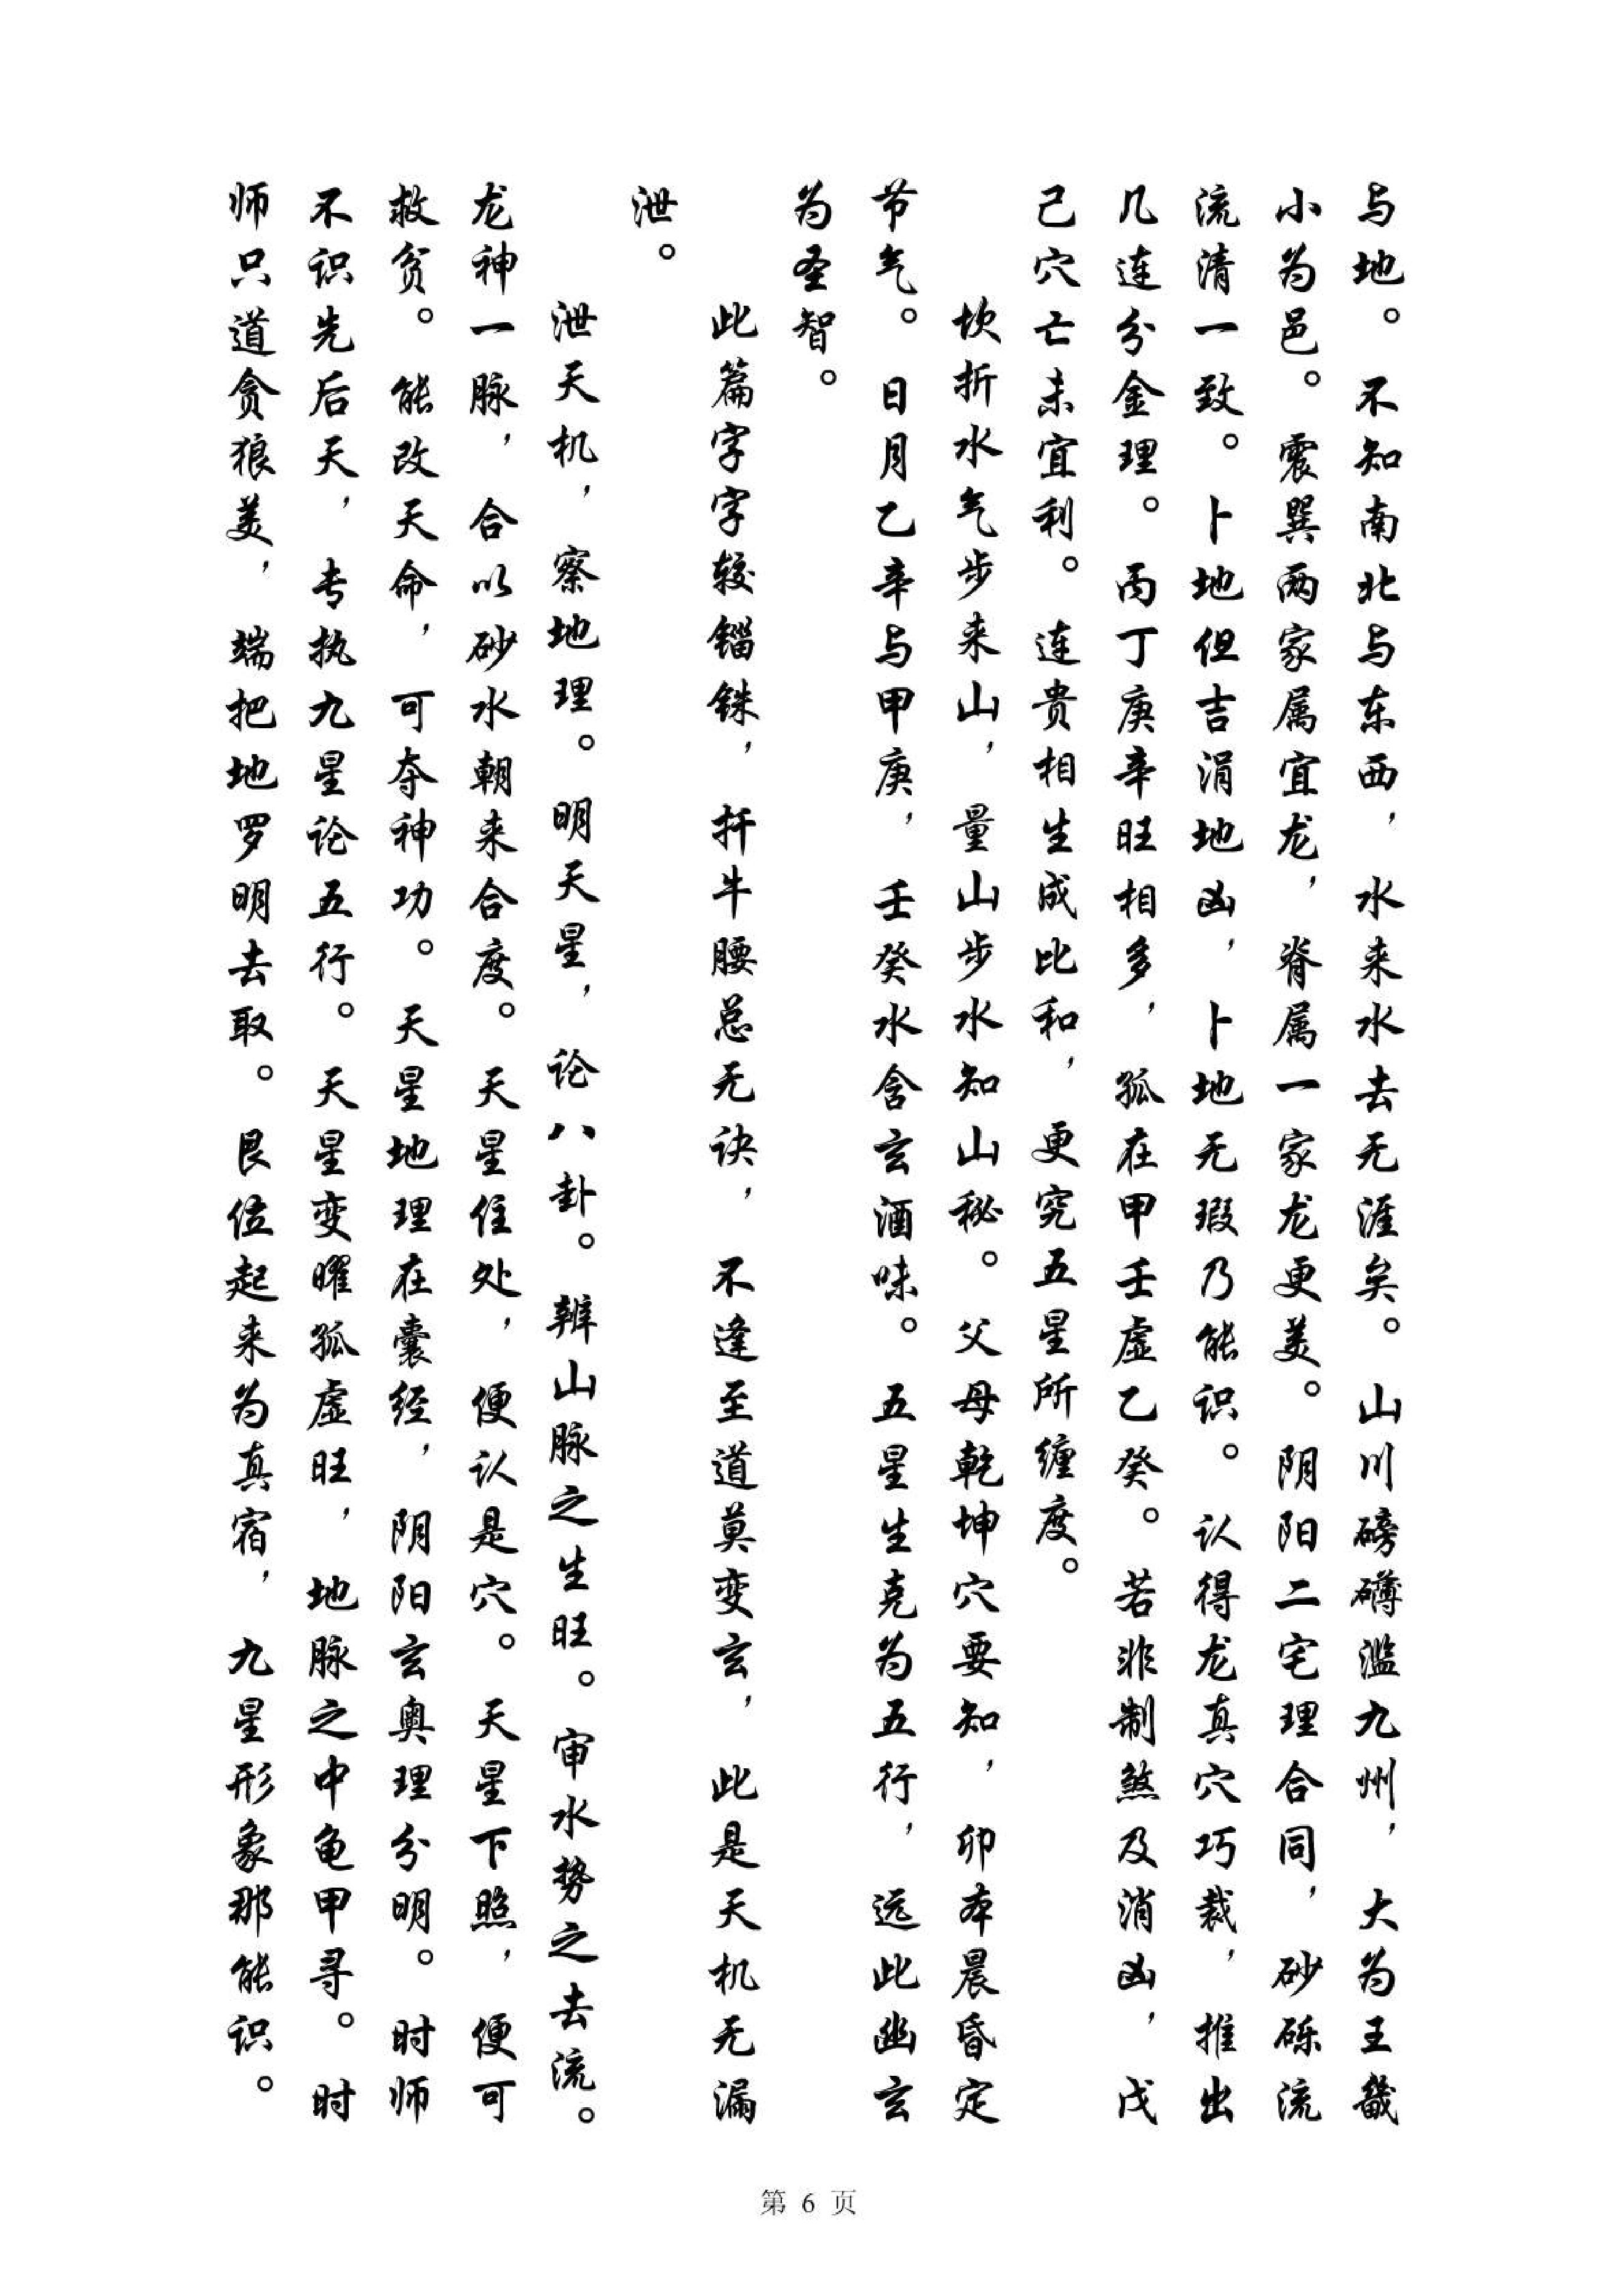 与地。不知南北与东西，水来水去无涯矣。山川磅礴滥九州，大为王畿
小为邑。震巽两家属宜龙，脊属一家龙更美。阴阳二宅理合同，砂砾流
流清一致。卜地但吉涓地凶，卜地无瑕乃能识。认得龙真穴巧裁，推出
几连分金理。丙丁庚辛旺相多，孤在甲壬虚乙癸。若非制煞及消凶，戊
己穴亡未宜利。连贵相生成比和，更究五星所缠度。
坎折水气步来山，量山步水知山秘。父母乾坤穴要知，卯本晨昏定
节气。日月乙辛与甲庚，壬癸水含玄酒味。五星生克为五行，远此幽玄
为圣智。
此篇字字较锱铢，扦牛腰总无诀，不逢至道莫变玄，此是天机无漏
泄。
泄天机，察地理。明天星，论八卦。辨山脉之生旺。审水势之去流。
龙神一脉，合以砂水朝来合度。天星住处，便认是穴。天星下照，便可
救贫。能改天命，可夺神功。天星地理在囊经，阴阳玄奥理分明。时师
不识先后天，专执九星论五行。天星变曜孤虚旺，地脉之中龟甲寻。时
师只道贪狼美，端把地罗明去取。艮位起来为真宿，九星形象那能识。
第 6 页